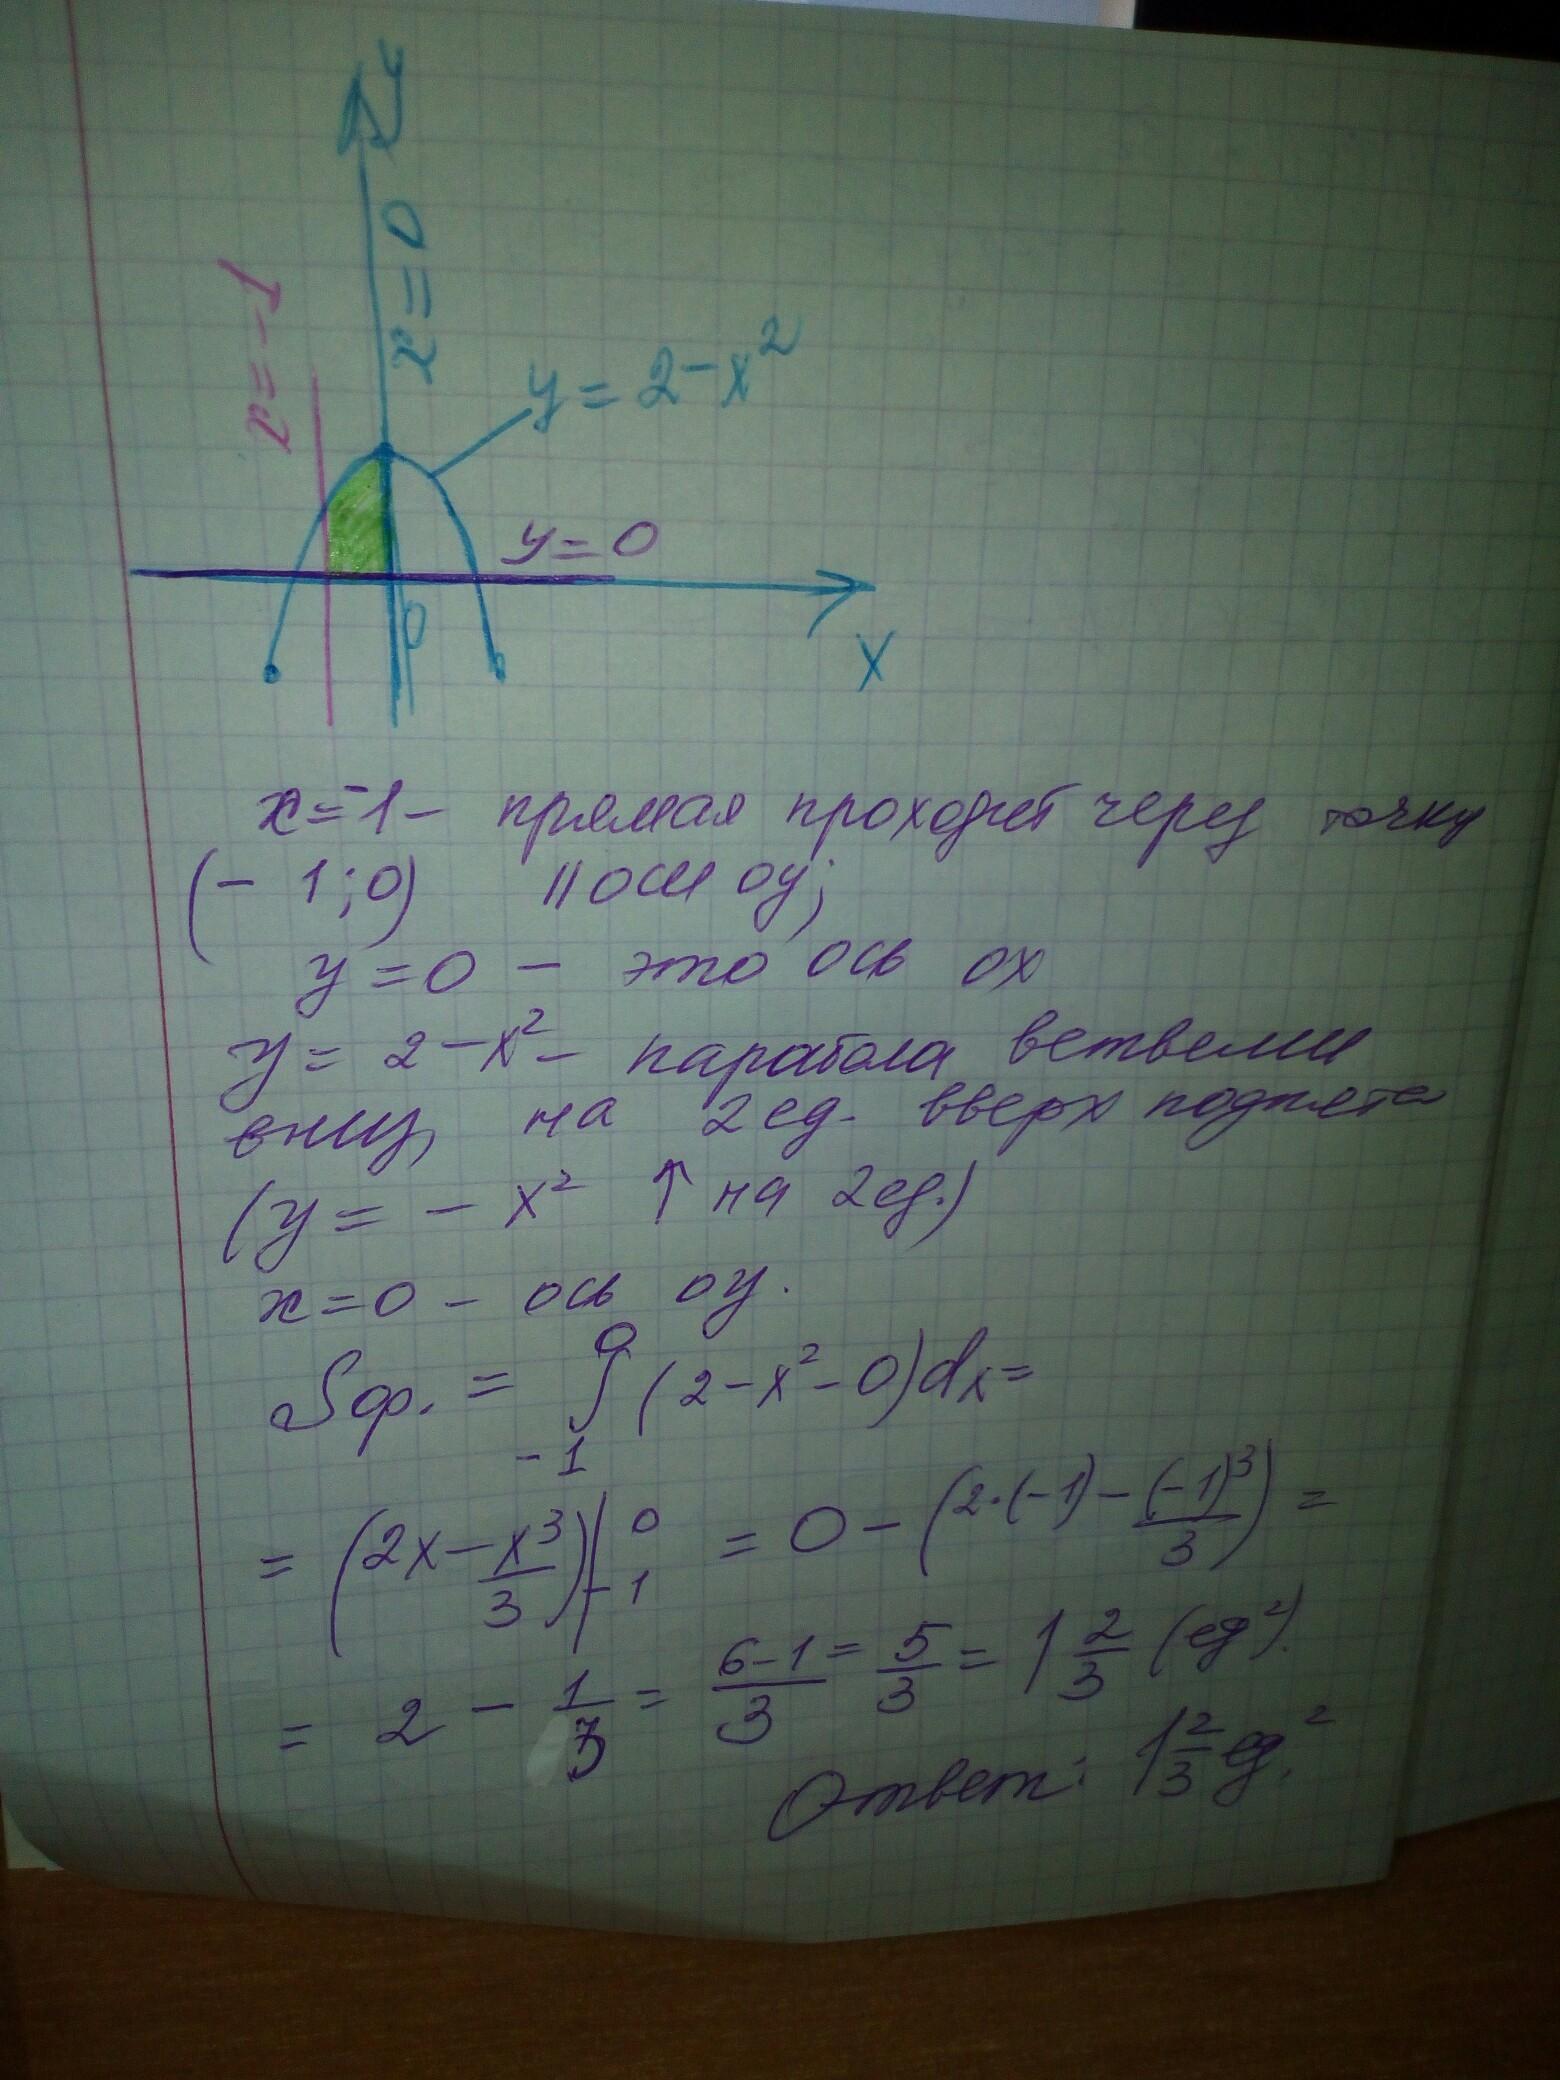 y
x=0
x=-1
y=2-x²
y=0
0
x
x=-1 - прямая проходит через точку
(- 1;0) || оси оу;
y=0 - это ось ох
y= 2-x² - парабола ветвями
вниз, на 2ед. вверх поднята
(y= - x² ↑ на 2ед.)
x=0 - ось оу.
Sф. = ∫₋₁⁰ (2-x²-0)dx=
= (2x-x³/3)|₋₁⁰ = 0-(2·(-1)-(-1)³/3) =
= 2 - 1/3 = (6-1)/3 = 5/3 = 1 2/3 (ед²).
Ответ: 1 2/3 ед.²